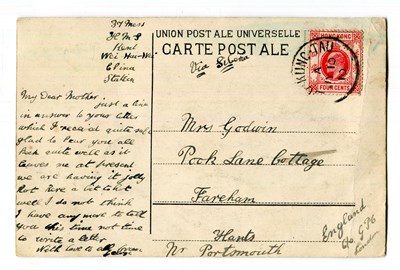 37 Mess
H M S
Kent
Wei Hai Wei
China
Station
My Dear Mother
just a line
in answer to your letter
which I received quite safe
glad to hear you all
quite well as it
leaves me at present
we are having it jolly
Hot here a bit
well I do not think
I have any more to tell
you this time not time
to write a letter
With love to all from
UNION POSTALE UNIVERSELLE
CARTE POSTALE
Via Siberia
HONG KONG
FOUR CENTS
Mrs Godwin
Pook Lane Cottage
Fareham
Hants
Nr Portsmouth
England
c/o G.P.O
London